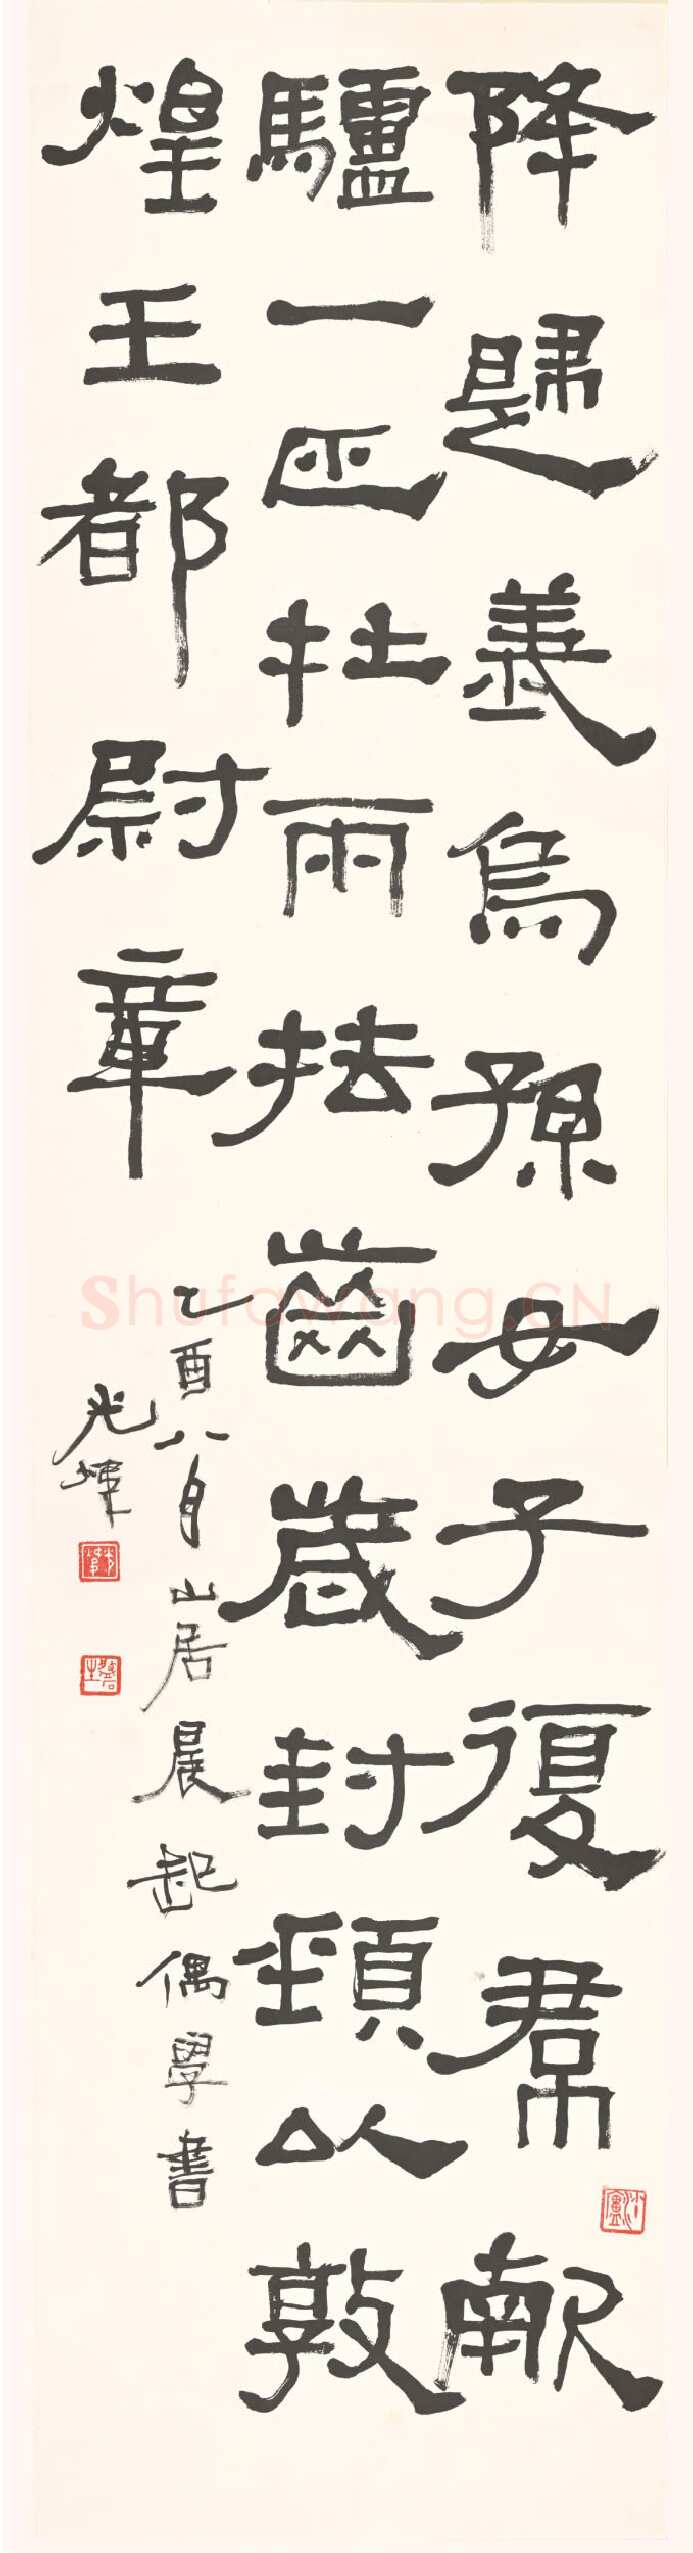 降歸義烏孫女子復帬獻
驢一匹牡兩抾齒歲封頸以敦
煌王都尉章
乙酉八月山居晨起偶學書
光煒
Shufawang.CN